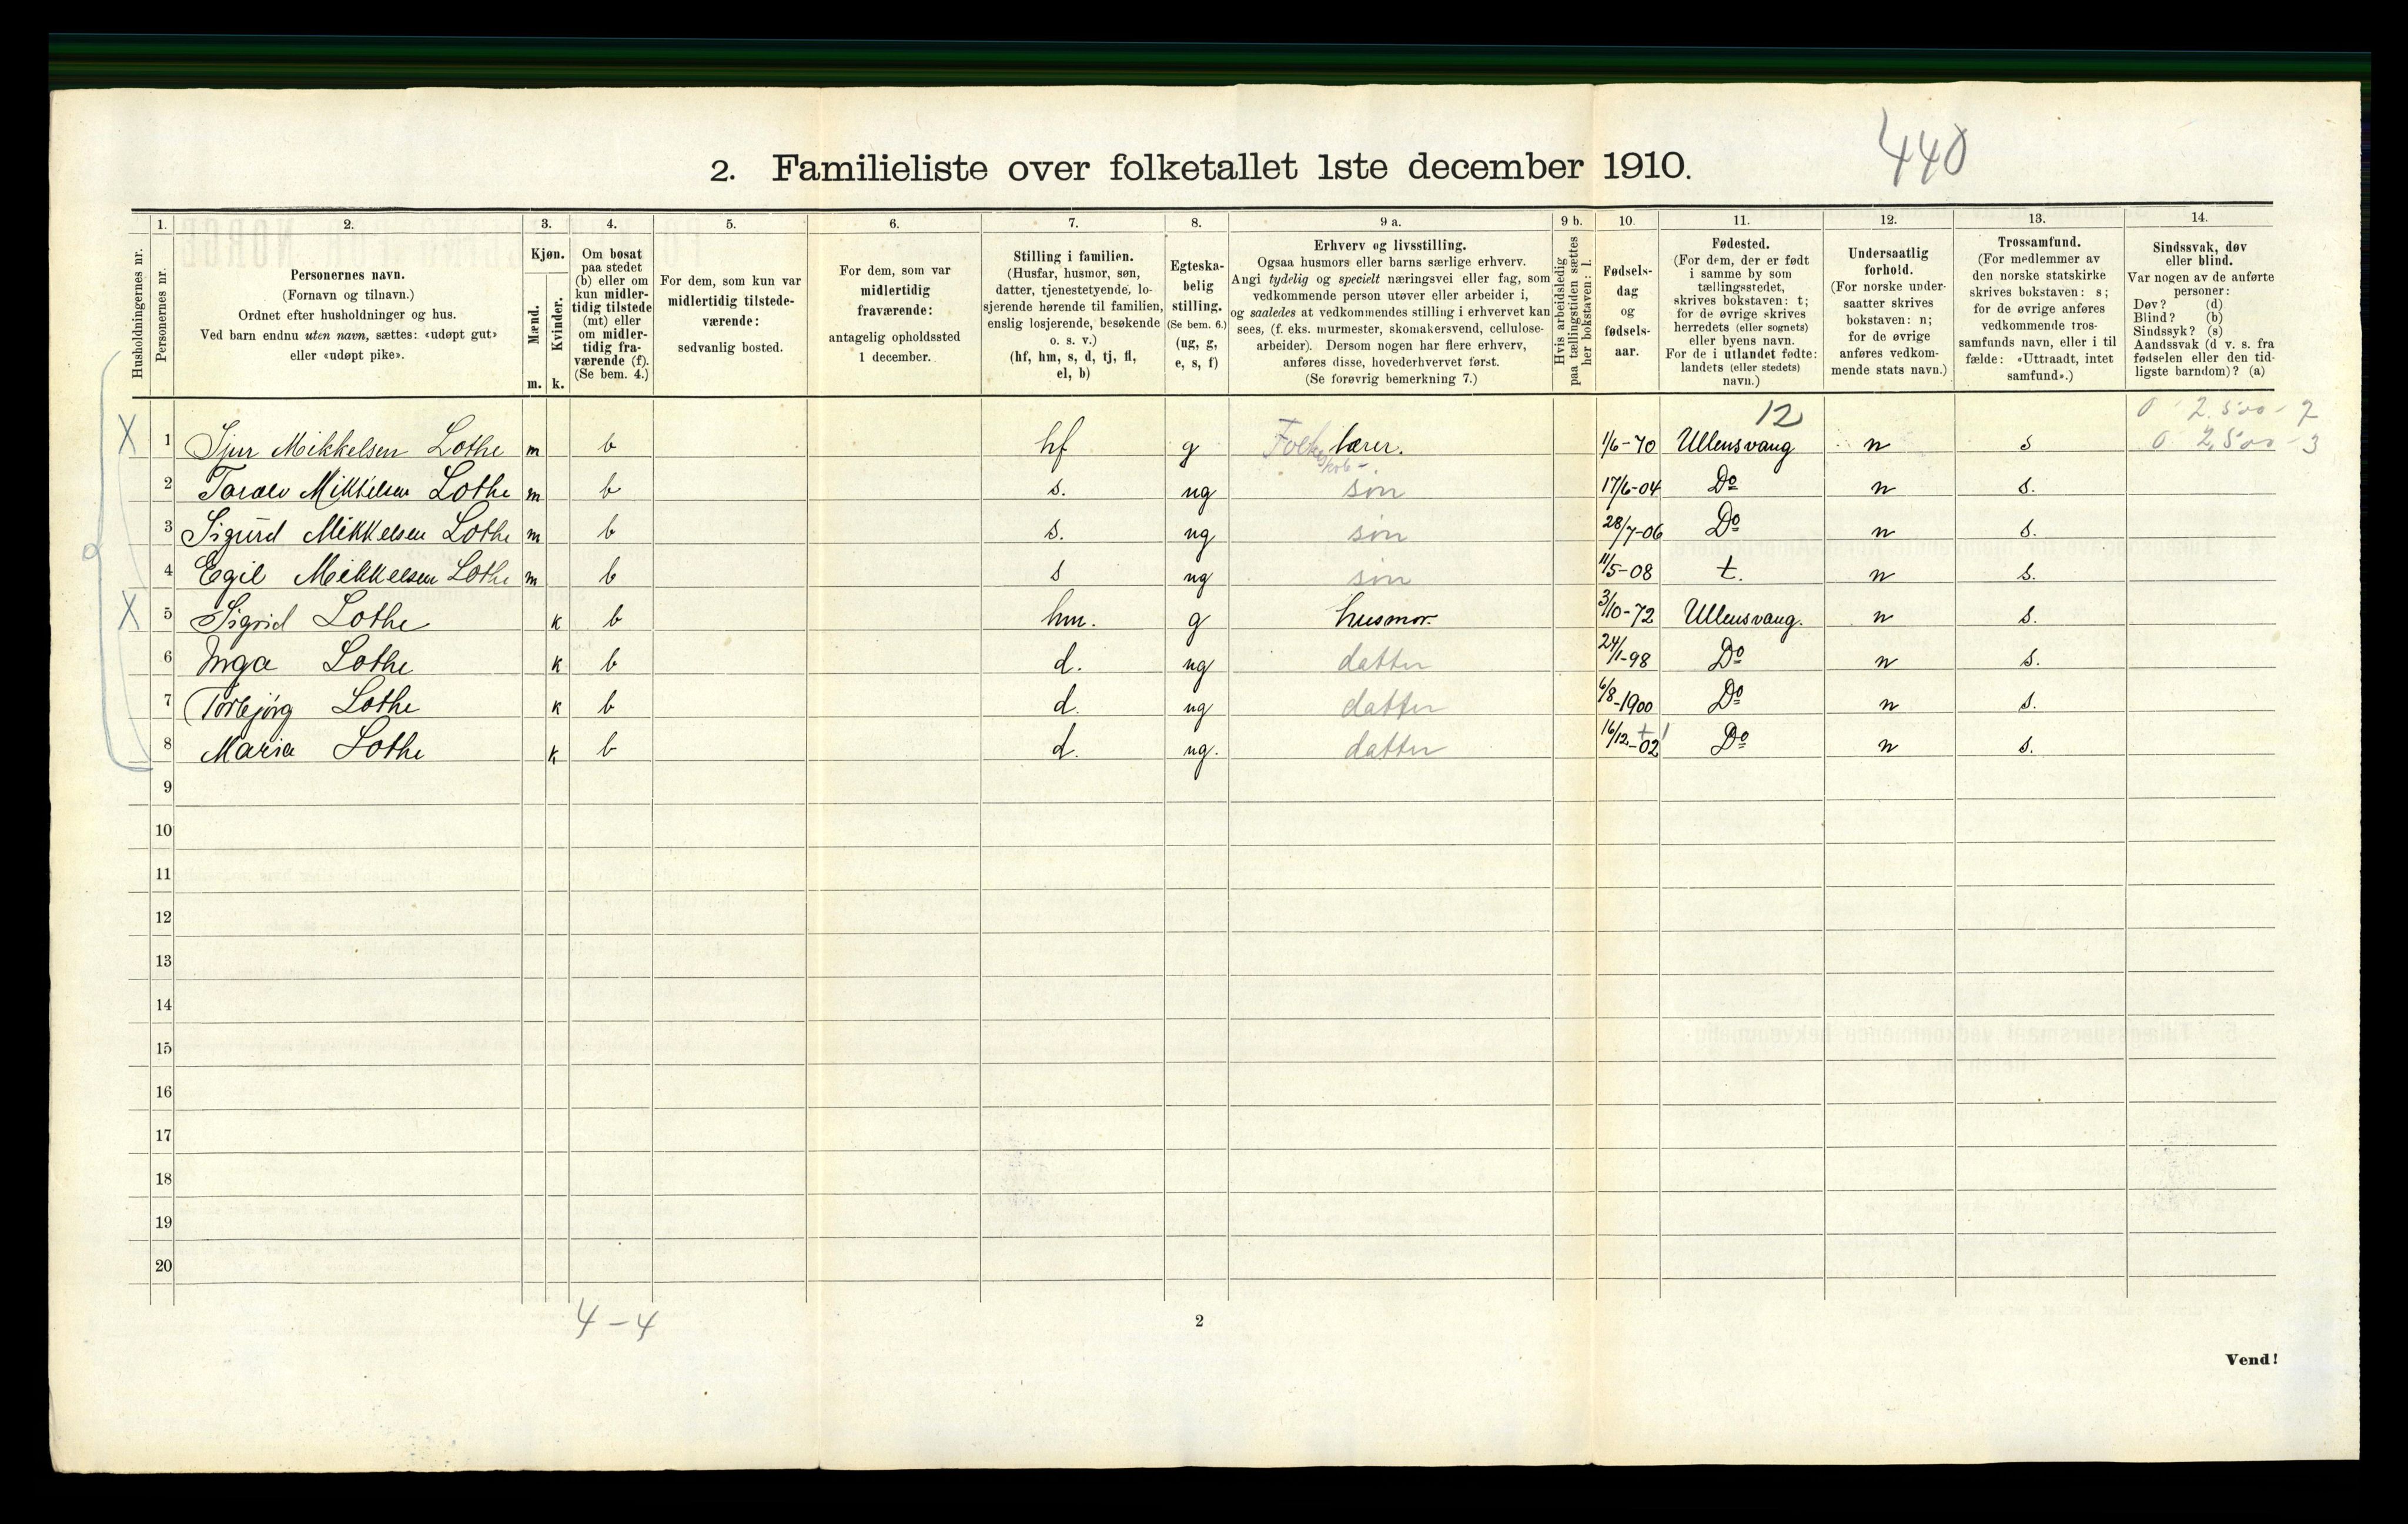 440
2. Familieliste over folketallet 1ste december 1910.
1. 2. 3. 4. 5. 6. 7. 8. 9 a. 9 b. 10. 11. 12. 13. 14.
Husholdningernes nr.
Personernes nr.
Personernes navn.
(Fornavn og tilnavn.)
Ordnet efter husholdninger og hus.
Ved barn endnu uten navn, sættes: «udøpt gut»
eller «udøpt pike».
Kjøn.
Mænd.
Kvinder.
m. k.
Om bosat
paa stedet
(b) eller om
kun midler-
tidig tilstede
(mt) eller
om midler-
tidig fra-
værende (f).
(Se bem. 4.)
For dem, som kun var
midlertidig tilstede-
værende:
sedvanlig bosted.
For dem, som var
midlertidig
fraværende:
antagelig opholdssted
1 december.
Stilling i familien.
(Husfar, husmor, søn,
datter, tjenestetyende, lo-
sjerende hørende til familien,
enslig losjerende, besøkende
o. s. v.)
(hf, hm, s, d, tj, fl,
el, b)
Egteska-
belig
stilling.
(Se bem. 6.)
(ug, g,
e, s, f)
Erhverv og livsstilling.
Ogsaa husmors eller barns særlige erhverv.
Angi tydelig og specielt næringsvei eller fag, som
vedkommende person utøver eller arbeider i,
og saaledes at vedkommendes stilling i erhvervet kan
sees, (f. eks. murmester, skomakersvend, cellulose-
arbeider). Dersom nogen har flere erhverv,
anføres disse, hovederhvervet først.
(Se forøvrig bemerkning 7.)
Hvis arbeidsledig
paa tællingstiden sættes
her bokstaven: l.
Fødsels-
dag
og
fødsels-
aar.
Fødested.
(For dem, der er født
i samme by som
tællingsstedet,
skrives bokstaven: t;
for de øvrige skrives
herredets (eller sognets)
eller byens navn.
For de i utlandet fødte:
landets (eller stedets)
navn.)
Undersaatlig
forhold.
(For norske under-
saatter skrives
bokstaven: n;
for de øvrige
anføres vedkom-
mende stats navn.)
Trossamfund.
(For medlemmer av
den norske statskirke
skrives bokstaven: s;
for de øvrige anføres
vedkommende tros-
samfunds navn, eller i til
fælde: «Uttraadt, intet
samfund».)
Sindssvak, døv
eller blind.
Var nogen av de anførte
personer:
Døv? (d)
Blind? (b)
Sindssyk? (s)
Aandssvak (d v. s. fra
fødselen eller den tid-
ligste barndom)? (a)
12 0 2.500 - 7
X 1 Sjur Mikkelsen Lothe m b hf g Folkeskole- lærer. 1/6-70 Ullensvang n s 0 2,500 - 3
2 Mikkelsen Lothe m b s. ug søn 17/6-04 Do n s.
3 Sigurd Mikkelsen Lothe m b s. ug søn 28/7-06 Do n s.
4 Egil Mikkelsen Lothe m b s ug søn 11/5-08 t. n s.
X 5 Sigrid Lothe k b hm. g husmor. 3/10-72 Ullensvang. n s.
6 Inga Lothe k b d. ug datter 24/1-98 Do n s.
7 Torbjørg Lothe k b d. ug datter 6/8-1900 Do n s.
8 Maria Lothe k b d. ug. datter 16/12-02 Do n s.
9
10
11
12
13
14
15
16
17
18
19
20
4-4
2
Vend!